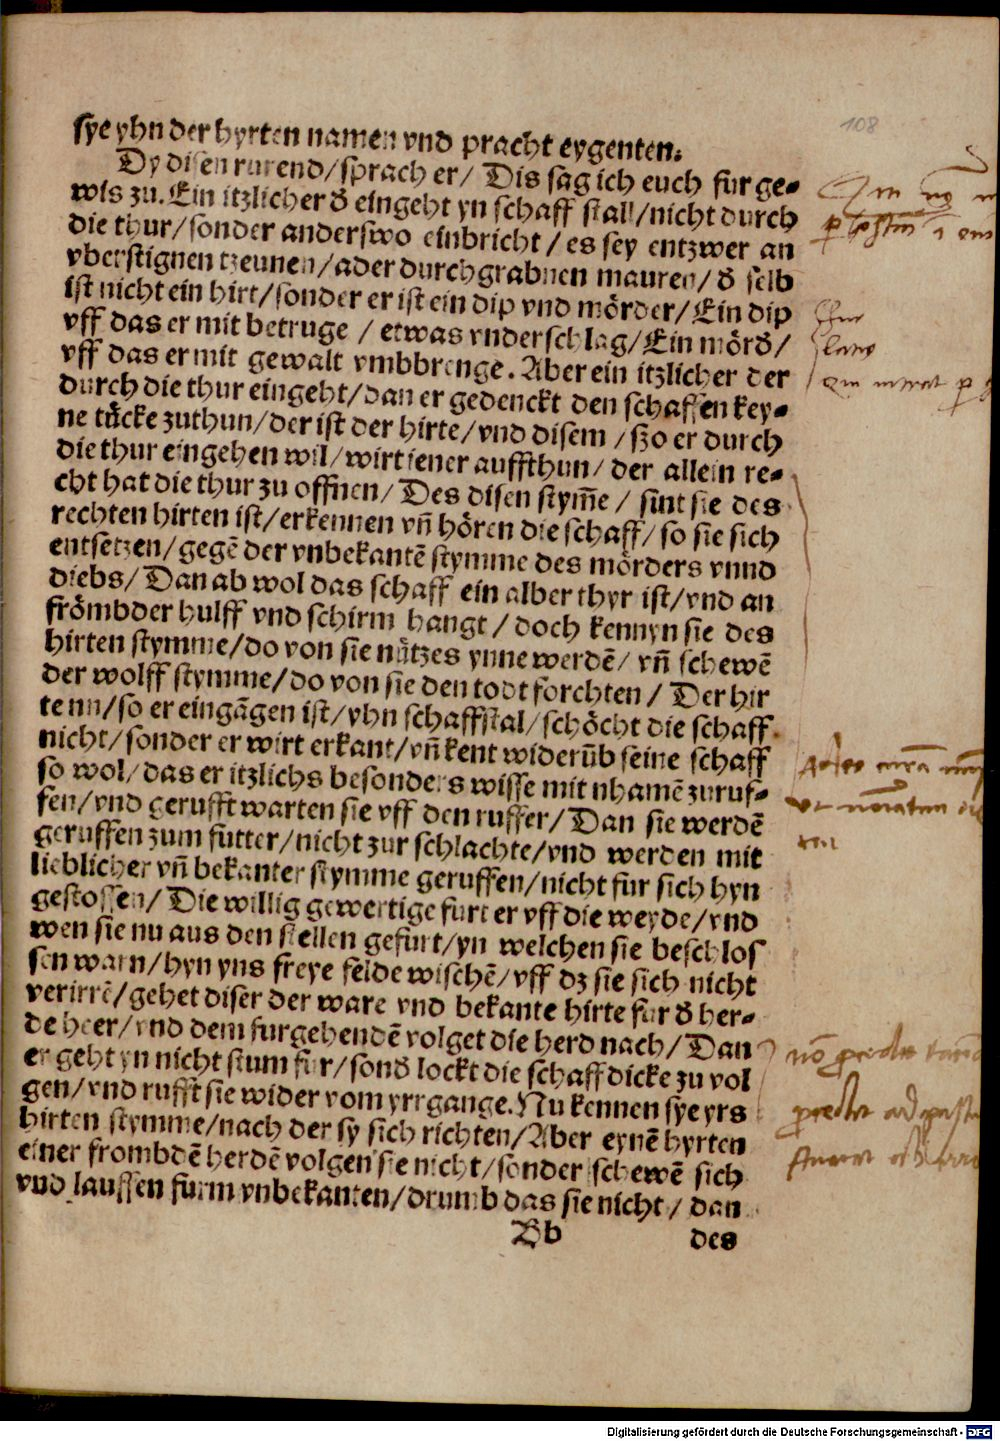 108
sye yhn der hyrten namen vnd pracht eygenten.
Dy disen rurend/sprach er/ Dis sag ich euch fur ge-
wis zu. Ein itzlicher d̕ eingeht yn schaff stall/nicht durch
die thur/sonder anderswo einbricht/es sey entzwer an
vberstignen tzeunen/ader durchgrabnen mauren/d̕ selb
ist nicht ein hirt/sonder er ist ein dip vnd mörder/Ein dip
vff das er mit betruge / etwas vnderschlag/Ein mörd̕/
vff das er mit gewalt vmbbrenge. Aber ein itzlicher der
durch die thur eingeht/dan er gedenckt den schaffen key-
ne tücke zuthun/der ist der hirte/vnd disem / szo er durch
die thur eingehen wil/wirt iener auffthun/ der allein re-
cht hat die thur zu offnen/ Des disen stym̄e / sint sie des
rechten hirten ist/erkennen vn̄ hören die schaff/so sie sich
entsetzen/gegē der vnbekantē stymme des mörders vnnd
diebs/ Dan ab wol das schaff ein alber thyr ist/vnd an
frömbder hulff vnd schirm hangt / doch kennyn sie des
hirten stymme/do von sie nützes ynne werdē/ vn̄ schewē
der wolff stymme/do von sie den todt forchten / Der hir
te nu/so er eingāgen ist/yhn schaffstal/schöcht die schaff
nicht/sonder er wirt erkant/vn̄ kent widerūb seine schaff
so wol/das er itzlichs besonders wisse mit nhamē zuruf-
fen/vnd gerufft warten sie vff den ruffer/Dan sie werdē
geruffen zum futter/nicht zur schlachte/vnd werden mit
lieblicher vn̄ bekanter stymme geruffen/nicht fur sich hyn
gestossen/ Die willig gewertige furt er vff die weyde/vnd
wen sie nu aus den stellen gefurt/yn welchen sie beschlos
sen warn/hyn yns freye felde wischē/vff dz sie sich nicht
verirrē/gehet diser der ware vnd bekante hirte fur d̕ her-
de heer/vnd dem furgehendē volget die herd nach/Dan
er geht yn nicht stum fur/sond̕ lockt die schaff dicke zu vol
gen/vnd rufft sie wider vom yrrgange. Nu kennen sye yrs
hirten stymme/nach der sy sich richten/Aber eynē hyrten
einer frombdē herdē volgen sie nicht/sonder schewē sich
vnd lauffen furm vnbekanten/drumb das sie nicht/ dan
Bb des
Digitalisierung gefördert durch die Deutsche Forschungsgemeinschaft - DFG